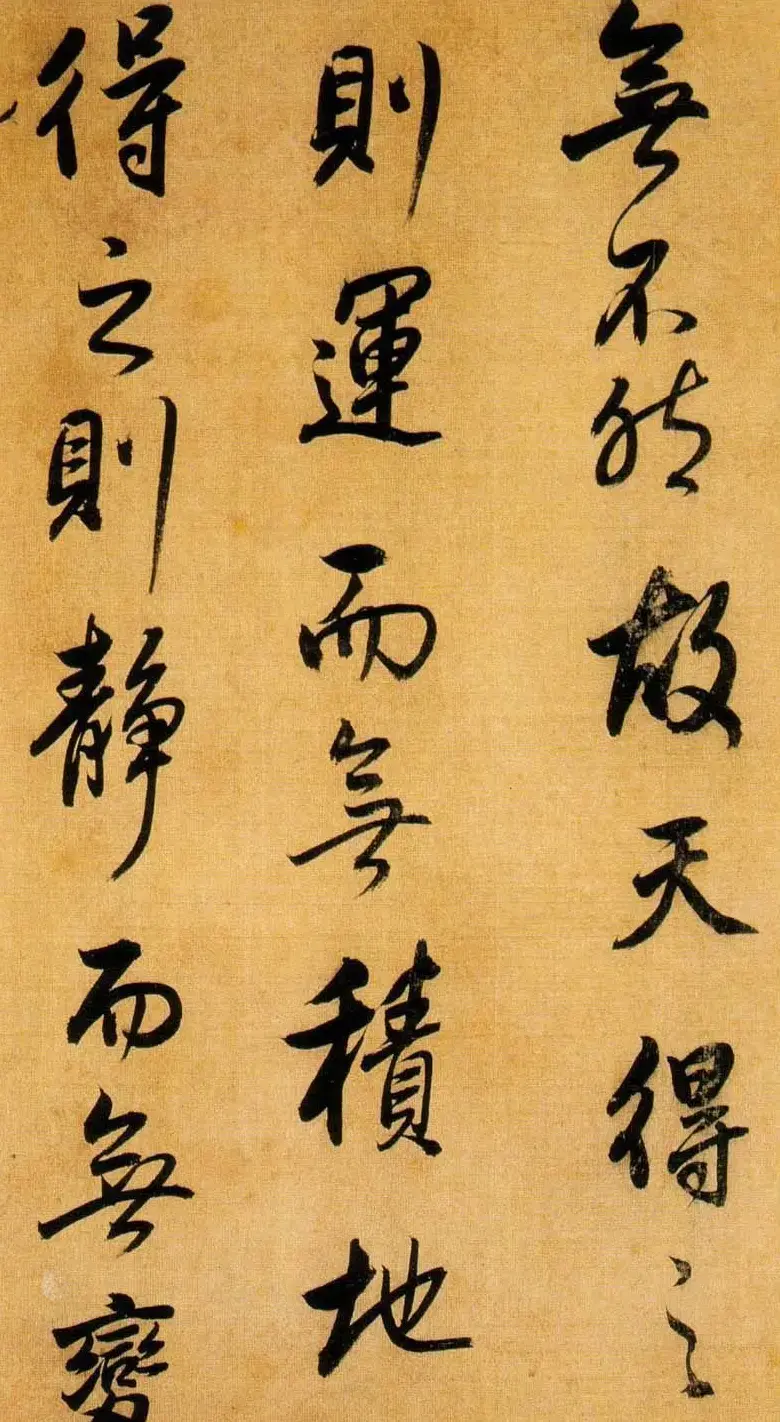 無不然故天得之
則運而無積地
得之則靜而無變